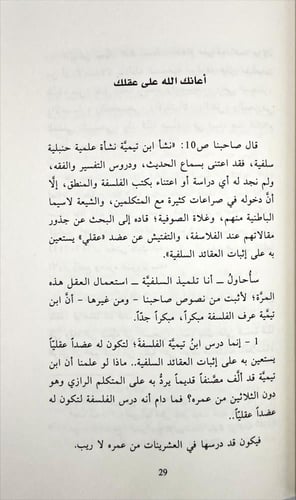 أعانك الله على عقلك
قال صاحبنا ص10: «نشأ ابن تيميَّة نشأة علمية حنبلية
سلفية، فقد اعتنى بسماع الحديث، ودروس التفسير والفقه،
ولم نجد له أي دراسة أو اعتناء بكتب الفلسفة والمنطق، إلَّا
أنَّ دخوله في صراعات كثيرة مع المتكلمين، والشيعة لاسيما
الباطنية منهم، وغلاة الصوفية؛ قاده إلى البحث عن جذور
مقالاتهم عند الفلاسفة، والتفتيش عن عضد «عقلي» يستعين
به على إثبات العقائد السلفية».
سأُحاولُ ـ أنا تلميذ السلفيَّة ـ استعمال العقل هذه
المرَّة؛ لأثبت من نصوص صاحبنا - ومن غيرها - أنَّ ابن
تيمية عرف الفلسفة مبكراً، مبكراً جدّاً.
1 - إنما درس ابنُ تيميَّة الفلسفةَ؛ لتكون له عضداً عقليّاً
يستعين به على إثبات العقائد السلفية.. ماذا لو علمنا أن ابن
تيميَّة قد ألَّف مصنَّفاً قديماً يردُّ به على المتكلم الرازي وهو
دون الثلاثين من عمره؟ فما دام أنه درس الفلسفة لتكون له
عضداً عقليّاً..
فيكون قد درسها في العشرينات من عمره لا ريب.
29